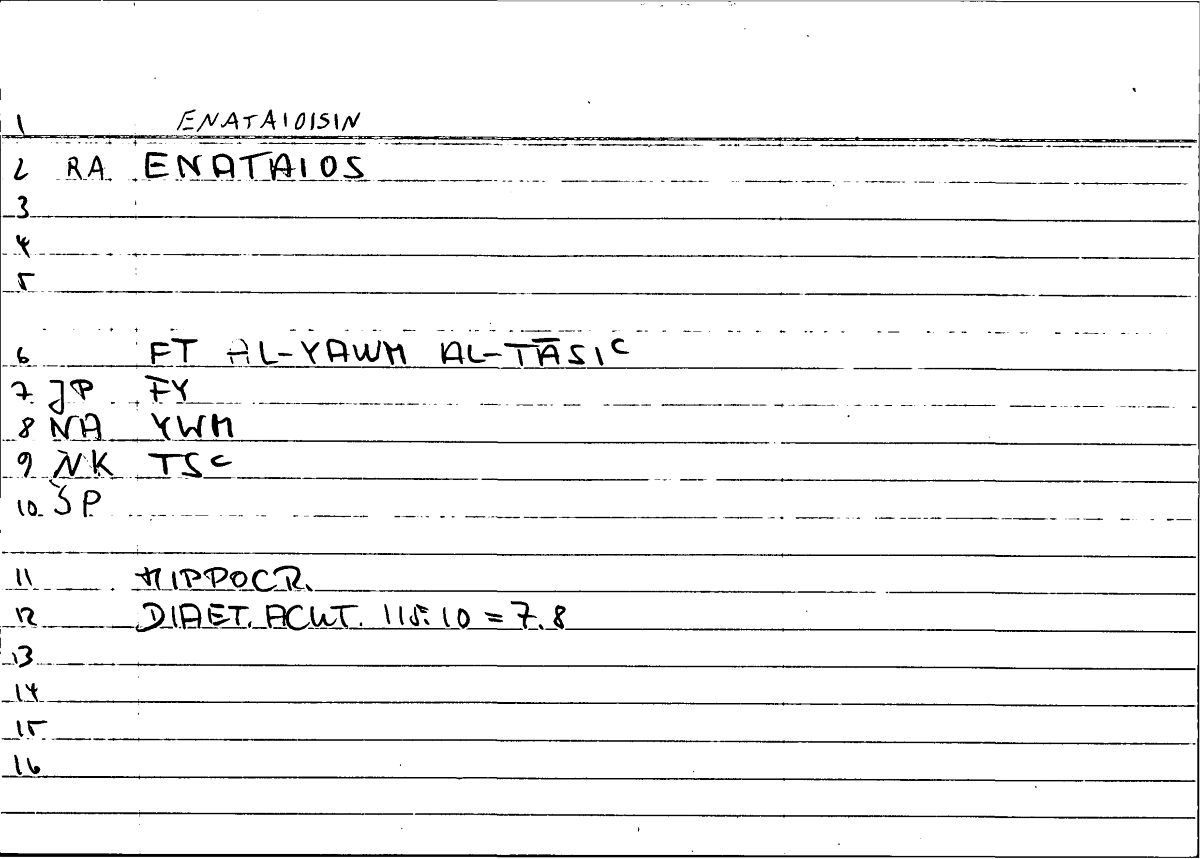 1 ENATAIOISIN
2 RA ENATAIOS
3
4
5
6 FT AL-YAWM AL-TĀSIC
7 JP FY
8 NA YWM
9 NK TSC
10 SP
11 HIPPOCR.
12 DIAET. ACUT. 115:10 = 7.8
13
14
15
16